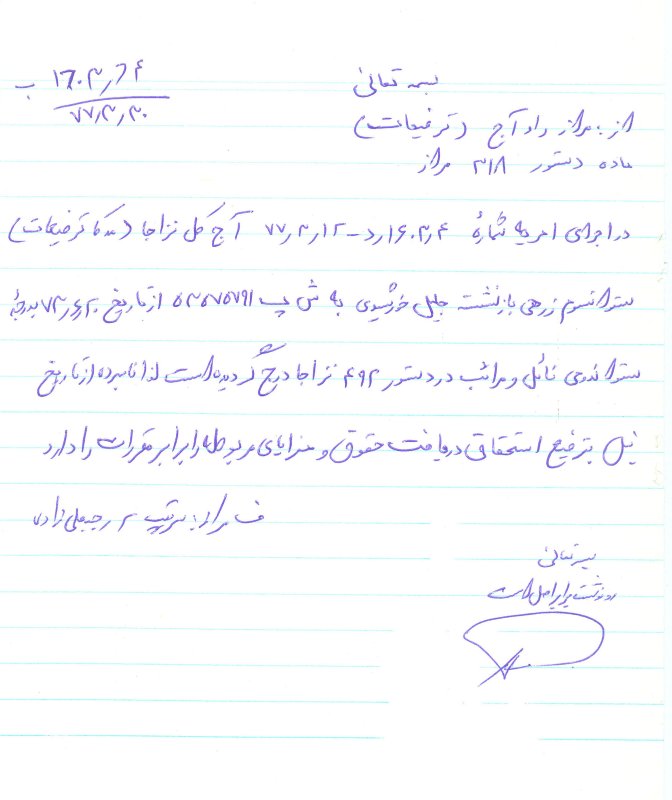 بسمه تعالی
۱۶۰۳٫۶۴ ب
۷۷٫۳٫۳۰
از : مراز راد آج (ترفیعات)
ماده دستور ۳۱۸ مراز
در اجرای امریه شمارهٔ ۱۶۰۳٫۴رد - ۷۷٫۳٫۱۲ آج کل نزاجا (ترفیعات)
ستوانسوم زرهی بازنشسته جلیل خورشیدی به ش پ ۵۳۵۷۵۷۹۱ از تاریخ بدرجهٔ
ستواندومی نائل و مراتب در دستور ۴۹۲ نزاجا درج گردیده است لذا نامبرده از تاریخ
نیل بترفیع استحقاق دریافت حقوق و مزایای مربوطه را برابر مقررات را دارد
ف مراز : سرتیپ ۲ رجبعلی زاده
بسمه تعالی
رونوشت برابر اصل است